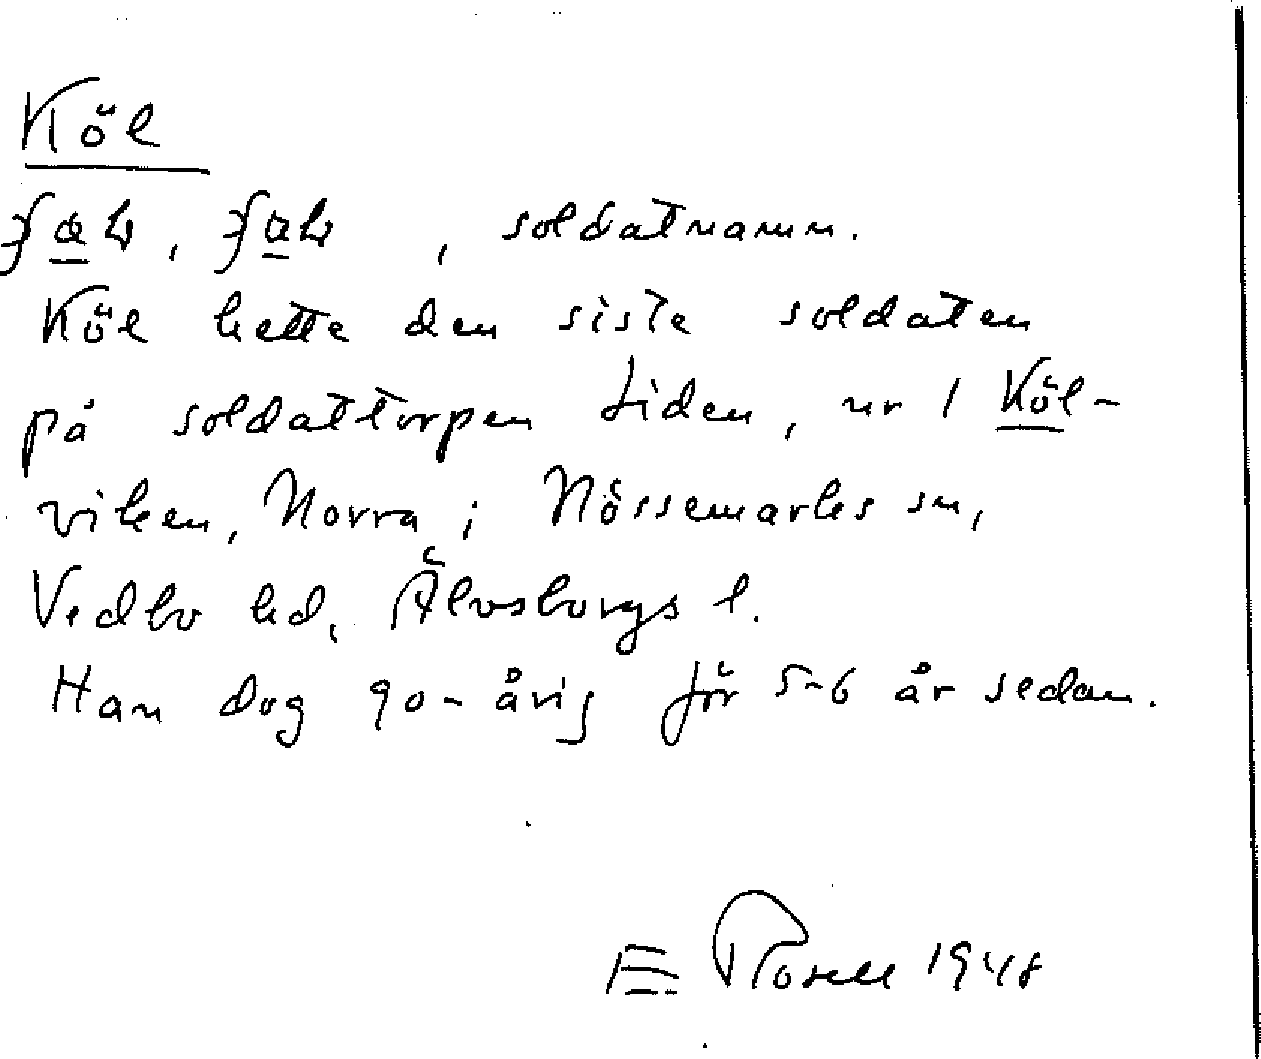 Köl
, , soldatnamn.
Köl hette den siste soldaten
på soldattorpen Liden, nr 1 Köl-
viken, Norra i Nössemarks sn,
Vedbo hd, Älvsborgs l.
Han dog 90-årig för 5-6 år sedan.
E. Rosell 1948